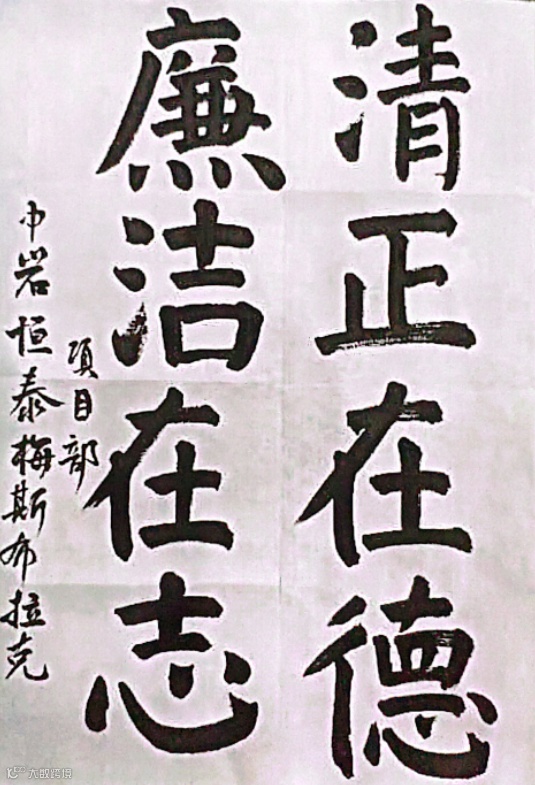 清正在德
廉洁在志
中岩恒泰梅斯布拉克
项目部
大数跨境